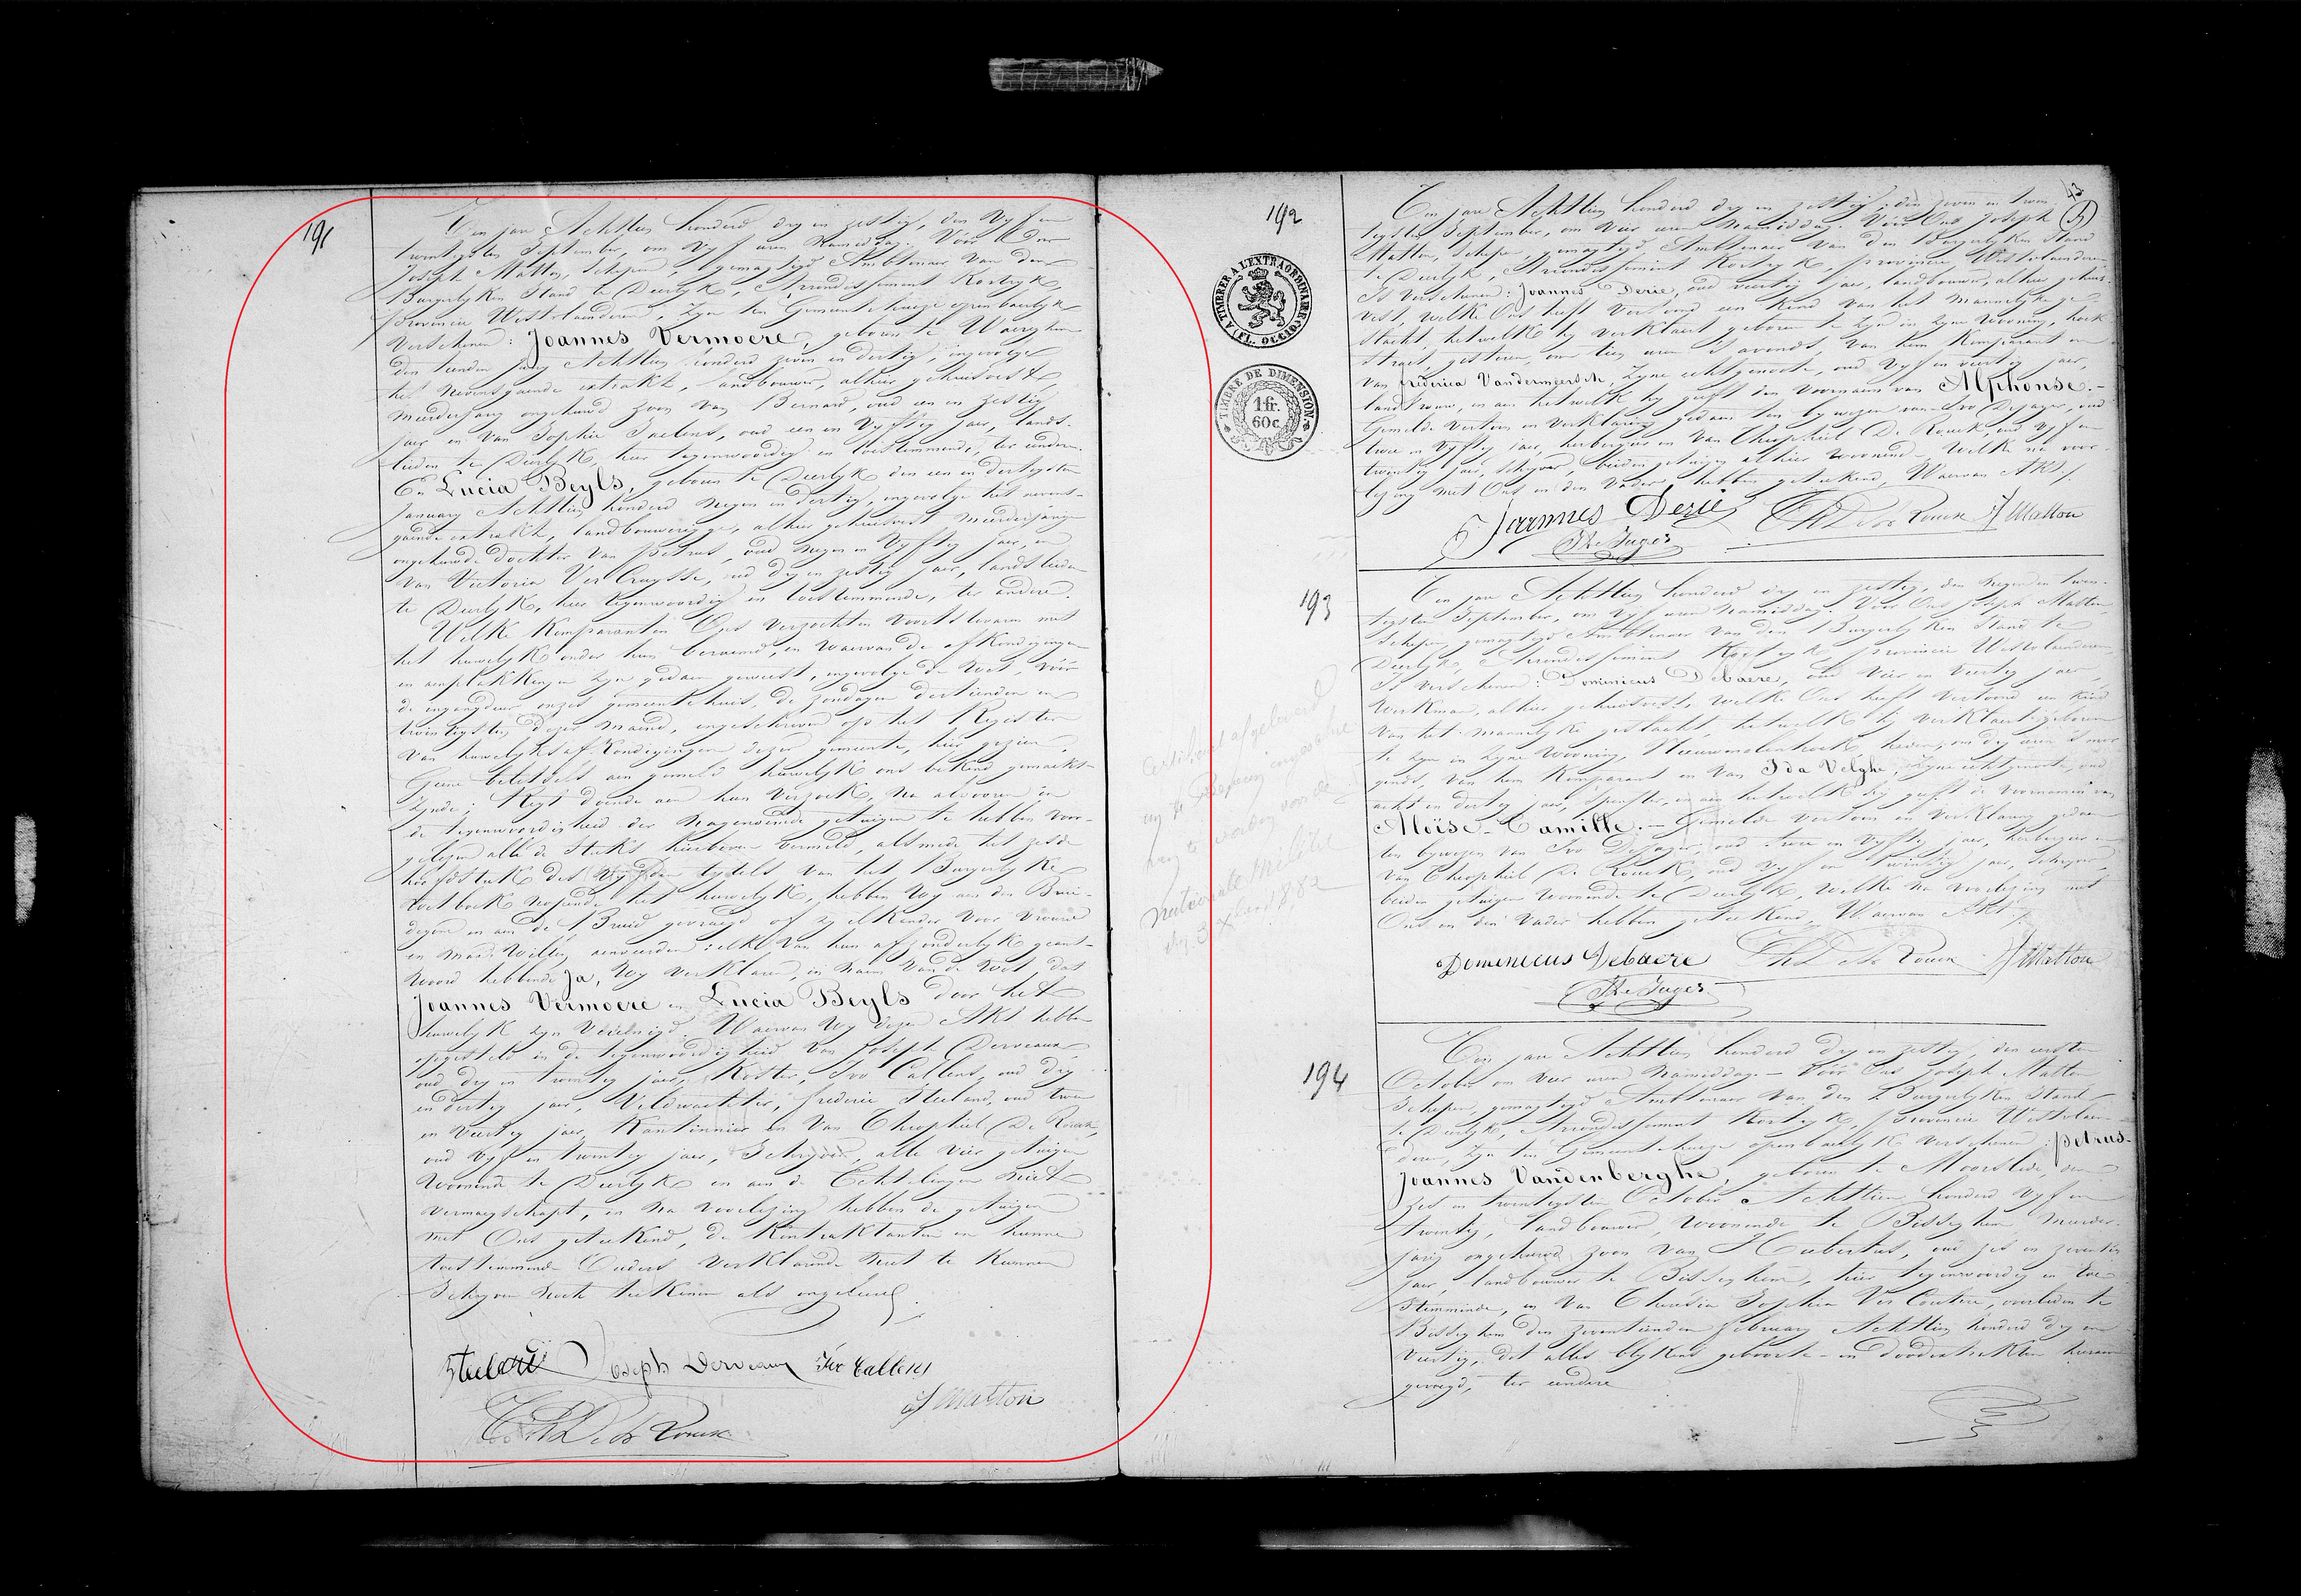 191
Ten jare Achttien honderd dry en zestig, den vyf en
twintigsten September, om vyf uren namiddag. Vóór Ons
Joseph Matton, Schepen, gemagtigd Ambtenaer van den
Burgerlyken Stand te Deerlyk, Arrondissement Kortryk,
provincie Westvlaenderen, zyn ten Gemeentehuize openbaerlyk
verschenen: Joannes Vermoere, geboren te Waereghem
den tienden juny Achttien honderd zeven en dertig, ingevolge
het nevensgaende extrakt, landbouwer, alhier gehuisvest,
meerderjarig ongehuwd zoon van Bernard, oud een en zestig
jaer en van Sophie Saelens, oud een en vyftig jaer, lands-
lieden te Deerlyk, hier tegenwoordig en toestemmende, ter eendere.
En Lucia Beyls, geboren te Deerlyk den een en dertigsten
January Achttien honderd negen en dertig, ingevolge het nevens-
gaende extrakt, landbouwerigge, alhier gehuisvest, meerderjarige
ongehuwde dochter van Petrus, oud negen en vyftig jaer, en
van Victoria Ver Cruysse, oud dry en zestig jaer, landslieden
te Deerlyk, hier tegenwoordig en toestemmende, ter andere.
Welke Komparanten Ons verzochten voorttevaren met
het huwelyk onder hun beraemd, en waervan de afkondigingen
en aenplakkingen zyn gedaen geweest, ingevolge de Wet, vóór
de ingangdeur onzes gemeentehuis, de zondagen dertienden en
twintigsten dezer maend, ingeschreven op het Register
van huwelyksafkondigingen dezer gemeente, hier gezien.
Geene beletsels aen gemeld huwelyk ons bekend gemaekt
zynde; Regt doende aen hun verzoek, na alvooren in
de tegenwoordigheid der nagenoemde getuigen te hebben voor-
gelezen alle de stuks hierboven vermeld, alsmede het zesde
hoofdstuk des vyfden tytels van het Burgerlyke
Wetboek nopende het huwelyk, hebben wy aen den Brui-
degom en aen de Bruid gevraegd of zy elkander voor Vrouw
en Man willen aenveerden: elk van hun afzonderlyk geant-
woord hebbende Ja, Wy verklaren, in naem van de Wet, dat
Joannes Vermoere en Lucia Beyls door het
huwelyk zyn vereenigd. Waervan wy dezen Akt hebben
opgesteld in de tegenwoordigheid van Joseph Derveaux
oud dry en twintig jaer, Koster, Ivo Callens, oud dry
en dertig jaer, Veldwachter, Frederic Steeland, oud twee
en veertig jaer, Kantonnier en van Theophiel De Rouck,
oud vyf en twintig jaer, Schryver, alle vier getuigen
woonende te Deerlyk en aen de Echtelingen niet
vermaegschapt, en na voorlezing hebben de getuigen
met Ons geteekend, de Kontraktanten en hunne
toestemmende Ouders verklarende niet te kunnen
Schryven noch teekenen als ongeleerd.
Steeland Joseph Derveaux Ivo Callens
J Matton
Th De Rouck
43
192
A TIMBRER A L'EXTRAORDINAIRE (FL. OCCID.)
TIMBRE DE DIMENSION
1 fr.
60 c.
Ten jare Achttien honderd dry en zestig, den zeven en twin-
tigsten September, om vier uren namiddag. Vóór Ons Joseph
Matton, Schepen, gemagtigd Ambtenaer van den Burgerlyken Stand
te Deerlyk, Arrondissement Kortryk, provincie Westvlaenderen
Is verschenen: Joannes Derie, oud veertig jaer, landbouwer, alhier gehuis-
vest, welke Ons heeft vertoond een Kind van het mannelyke ge-
slacht, hetwelke hy verklaert geboren te zyn in zyne wooning, hoek
straet, gisteren, om tien uren 's avonds, van hem Komparant en
van Frederica Vandermeersch, zyne echtgenoote, oud vyf en veertig jaer,
landvrouw, en aen hetwelk hy geeft den voornaem van Alphonse.-
Gemelde vertoon en verklaring gedaen ten bywezen van Ivo Dejager, oud
twee en vyftig jaer, herbergier en van Theophiel De Rouck, oud vyf en
twintig jaer, schryver, beiden getuigen alhier woonende. Welke na voor-
lezing met Ons en den Vader hebben geteekend, Waervan Akt.
Joannes Derie Th De Rouck J Matton
193
Ten jare Achttien honderd dry en zestig, den negen en twin-
tigsten September, om vyf uren namiddag. Vóór Ons Joseph Matton,
Schepen, gemagtigd Ambtenaer van den Burgerlyken Stand te
Deerlyk, Arrondissement Kortryk, provincie Westvlaenderen
Is verschenen: Dominicus Debaere, oud vier en veertig jaer,
Werkman, alhier gehuisvest, welke Ons heeft vertoond een Kind
van het mannelyke geslacht, hetwelk hy verklaert geboren
te zyn in zyne wooning, Nieuwmolenhoek, heden, om dry uren 's mor-
gends, van hem Komparant en van Ida Velghe, zyne echtgenoote, oud
acht en dertig jaer, spinster, en aen hetwelk hy geeft de voornamen van
Aloïse-Camille.- Gemelde vertoon en verklaring gedaen
ten bywezen van Ivo Dejager, oud twee en vyftig jaer, herbergier en
van Theophiel De Rouck, oud vyf en twintig jaer, schryver,
beiden getuigen woonende te Deerlyk, welke na voorlezing met
Ons en den Vader hebben geteekend, Waervan Akt.
Dominicus Debaere Th De Rouck J Matton
194
Ten jare Achttien honderd dry en zestig, den eersten
October om vier uren namiddag.- Vóór Ons Joseph Matton
Schepen, gemagtigd Ambtenaer van den Burgerlyken Stand
te Deerlyk, Arrondissement Kortryk, provincie Westvlaen-
deren, zyn ten Gemeentehuize openbaerlyk verschenen Petrus-
Joannes Vandenberghe, geboren te Moorslede, den
zes en twintigsten October Achttien honderd vyf en
twintig, landbouwer, woonende te Bisseghem, meerder-
jarig ongehuwd zoon van Hubertus, oud zes en zeventig
jaer, landbouwer te Bisseghem, hier tegenwoordig en toe-
stemmende, en van Theresia Sophia Ver Coutere, overleden te
Bisseghem den zeventienden february Achttien honderd dry en
veertig, dit alles blykens geboorte- en doodextrakten hieraen
gevoegd, ter eendere